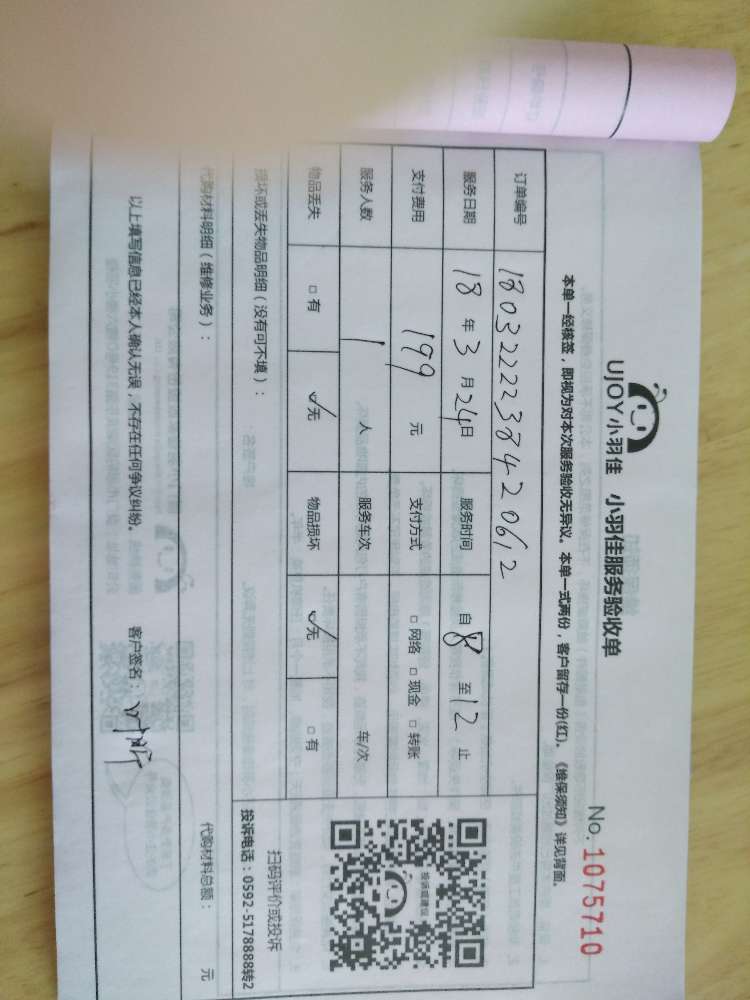 UJOY小羽佳 小羽佳服务验收单
No. 1075710
本单一经核签，即视为对本次服务验收无异议。本单一式两份，客户留存一份(红)。《维保须知》详见背面。
订单编号 18032222384420612
服务日期 18年3月24日 服务时间 自8至12止
支付费用 199元 支付方式 □网络 □现金 □转账
服务人数 1人 服务车次 车/次
物品丢失 □有 ☑无 物品损坏 ☑无 □有
投诉或建议
扫码评价或投诉
投诉电话：0592-5178888转2
损坏或丢失物品明细（没有可不填）：
代购材料明细（维修业务）： 代购材料总额： 元
以上填写信息已经本人确认无误，不存在任何争议纠纷。 客户签名：